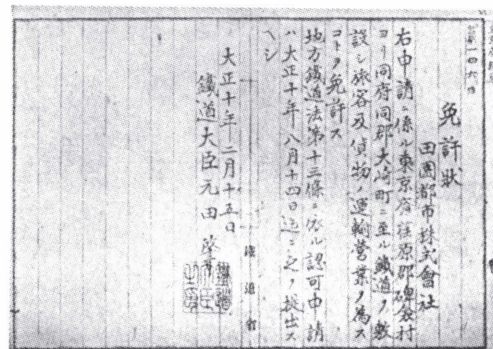 第一四六号
免許狀
田園都市株式會社
右申請ニ係ル東京府荏原郡碑衾村
ヨリ同府同郡大崎町ニ至ル鐵道ヲ敷
設シ旅客及貨物ノ運輸營業ヲ爲ス
コトヲ免許ス
地方鐵道法第十三條ニ依ル認可申請
ハ大正十年八月十四日迄ニ之ヲ提出ス
ヘシ
大正十年二月十五日
鐵道大臣元田肇
鐵道省